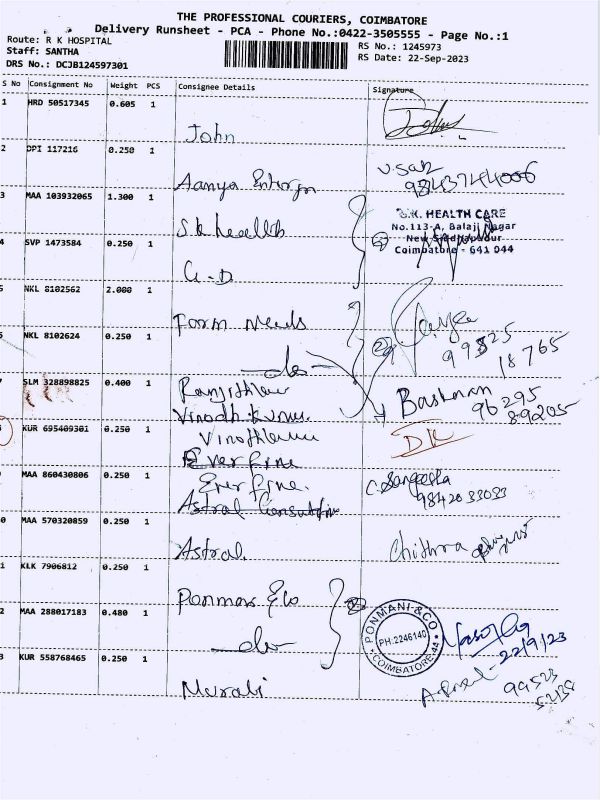 THE PROFESSIONAL COURIERS, COIMBATORE
Delivery Runsheet - PCA - Phone No.:0422-3505555 - Page No.:1
Route: R K HOSPITAL
Staff: SANTHA
DRS No.: DCJB124597301
RS No.: 1245973
RS Date: 22-Sep-2023
S No Consignment No Weight PCS Consignee Details Signature
1 HRD 50517345 0.605 1
John
2 DPI 117216 0.250 1
Aanya
9843744006
3 MAA 103932065 1.300 1
S.K. HEALTH CARE
No.113-A, Balaji Nagar
New Siddhapudur
Coimbatore - 641 044
4 SVP 1473584 0.250 1
G.D
5 NKL 8102562 2.000 1
Form Needs
99525
18765
6 NKL 8102624 0.250 1
7 SLM 328898825 0.400 1
Vinodh Kumar
Baskaran
96295
89205
KUR 695409301 0.250 1
Everfine
MAA 860430806 0.250 1
Everfine.
C. Sangeetha
9842033033
Astral
0 MAA 570320859 0.250 1
Astral
Chithra
1 KLK 7906812 0.250 1
Ponmani & Co
2 MAA 288017183 0.480 1
PONMANI & CO
PH:2246140
COIMBATORE-44
22/9/23
3 KUR 558768465 0.250 1
Murali
99523
52138